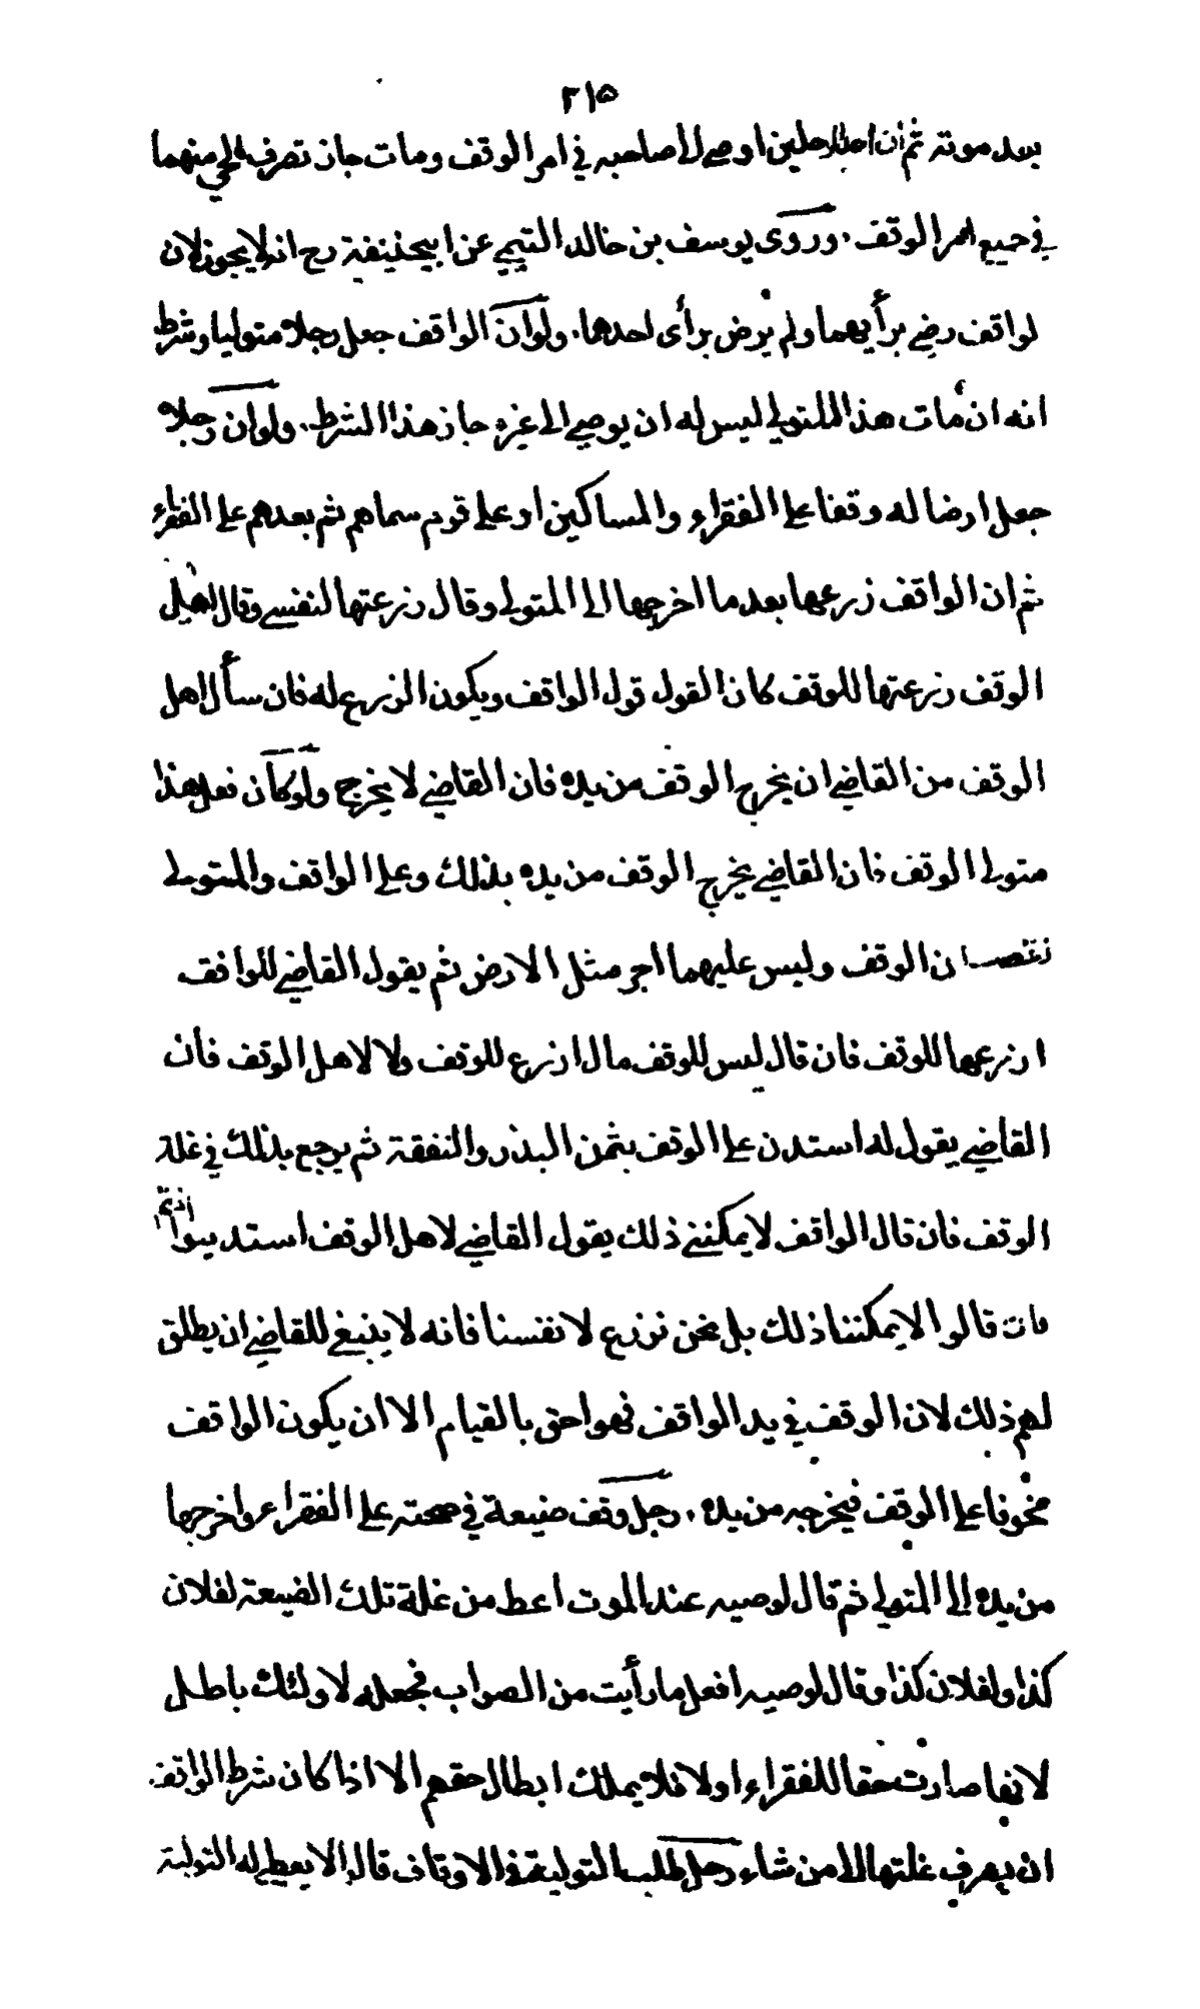 ٢١٥
بعد موته ثم ان احد الرجلين اوصى الى صاحبه في امر الوقف ومات جاز تصرف الحي منهما
في جميع امر الوقف، وروى يوسف بن خالد التيمي عن ابيحنيفة رح انه لا يجوز لان
لواقف رضي برأيهما ولم يرض برأى احدهما، ولو ان الواقف جعل رجلا متوليا وشرط
انه ان مات هذا المتولي ليس له ان يوصي الى غيره جاز هذا الشرط، ولو ان رجلا
جعل ارضا له وقفا على الفقراء والمساكين او على قوم سماهم ثم بعدهم على الفقراء
ثم ان الواقف زرعها بعد ما اخرجها الى المتولي وقال زرعتها لنفسي وقال اهل
الوقف زرعتها للوقف كان القول قول الواقف ويكون الزرع له فان سأل اهل
الوقف من القاضي ان يخرج الوقف من يده فان القاضي لا يخرج ولو كان فعل هذا
متولي الوقف فان القاضي يخرج الوقف من يده بذلك وعلى الواقف والمتولي
نقصان الوقف وليس عليهما اجر مثل الارض ثم يقول القاضي للواقف
ازرعها للوقف فان قال ليس للوقف مال ازرع للوقف ولا لاهل الوقف فان
القاضي يقول له استدن على الوقف بثمن البذر والنفقة ثم يرجع بذلك في غلة
الوقف فان قال الواقف لا يمكنني ذلك يقول القاضي لاهل الوقف استدينوا انتم
فان قالوا لا يمكننا ذلك بل نحن نزرع لانفسنا فانه لا ينبغي للقاضي ان يطلق
لهم ذلك لان الوقف في يد الواقف فهو احق بالقيام الا ان يكون الواقف
مخوفا على الوقف فيخرجه من يده، رجل وقف ضيعة في صحته على الفقراء واخرجها
من يده الى المتولي ثم قال لوصيه عند الموت اعط من غلة تلك الضيعة لفلان
كذا ولفلان كذا وقال لوصيه افعل ما رأيت من الصواب فجعله لاولئك باطل
لانها صارت حقا للفقراء اولا فلا يملك ابطال حقهم الا اذا كان شرط الواقف
ان يصرف غلتها الى من شاء رجل طلب التولية في الاوقاف قالوا لا يعطى له التولية